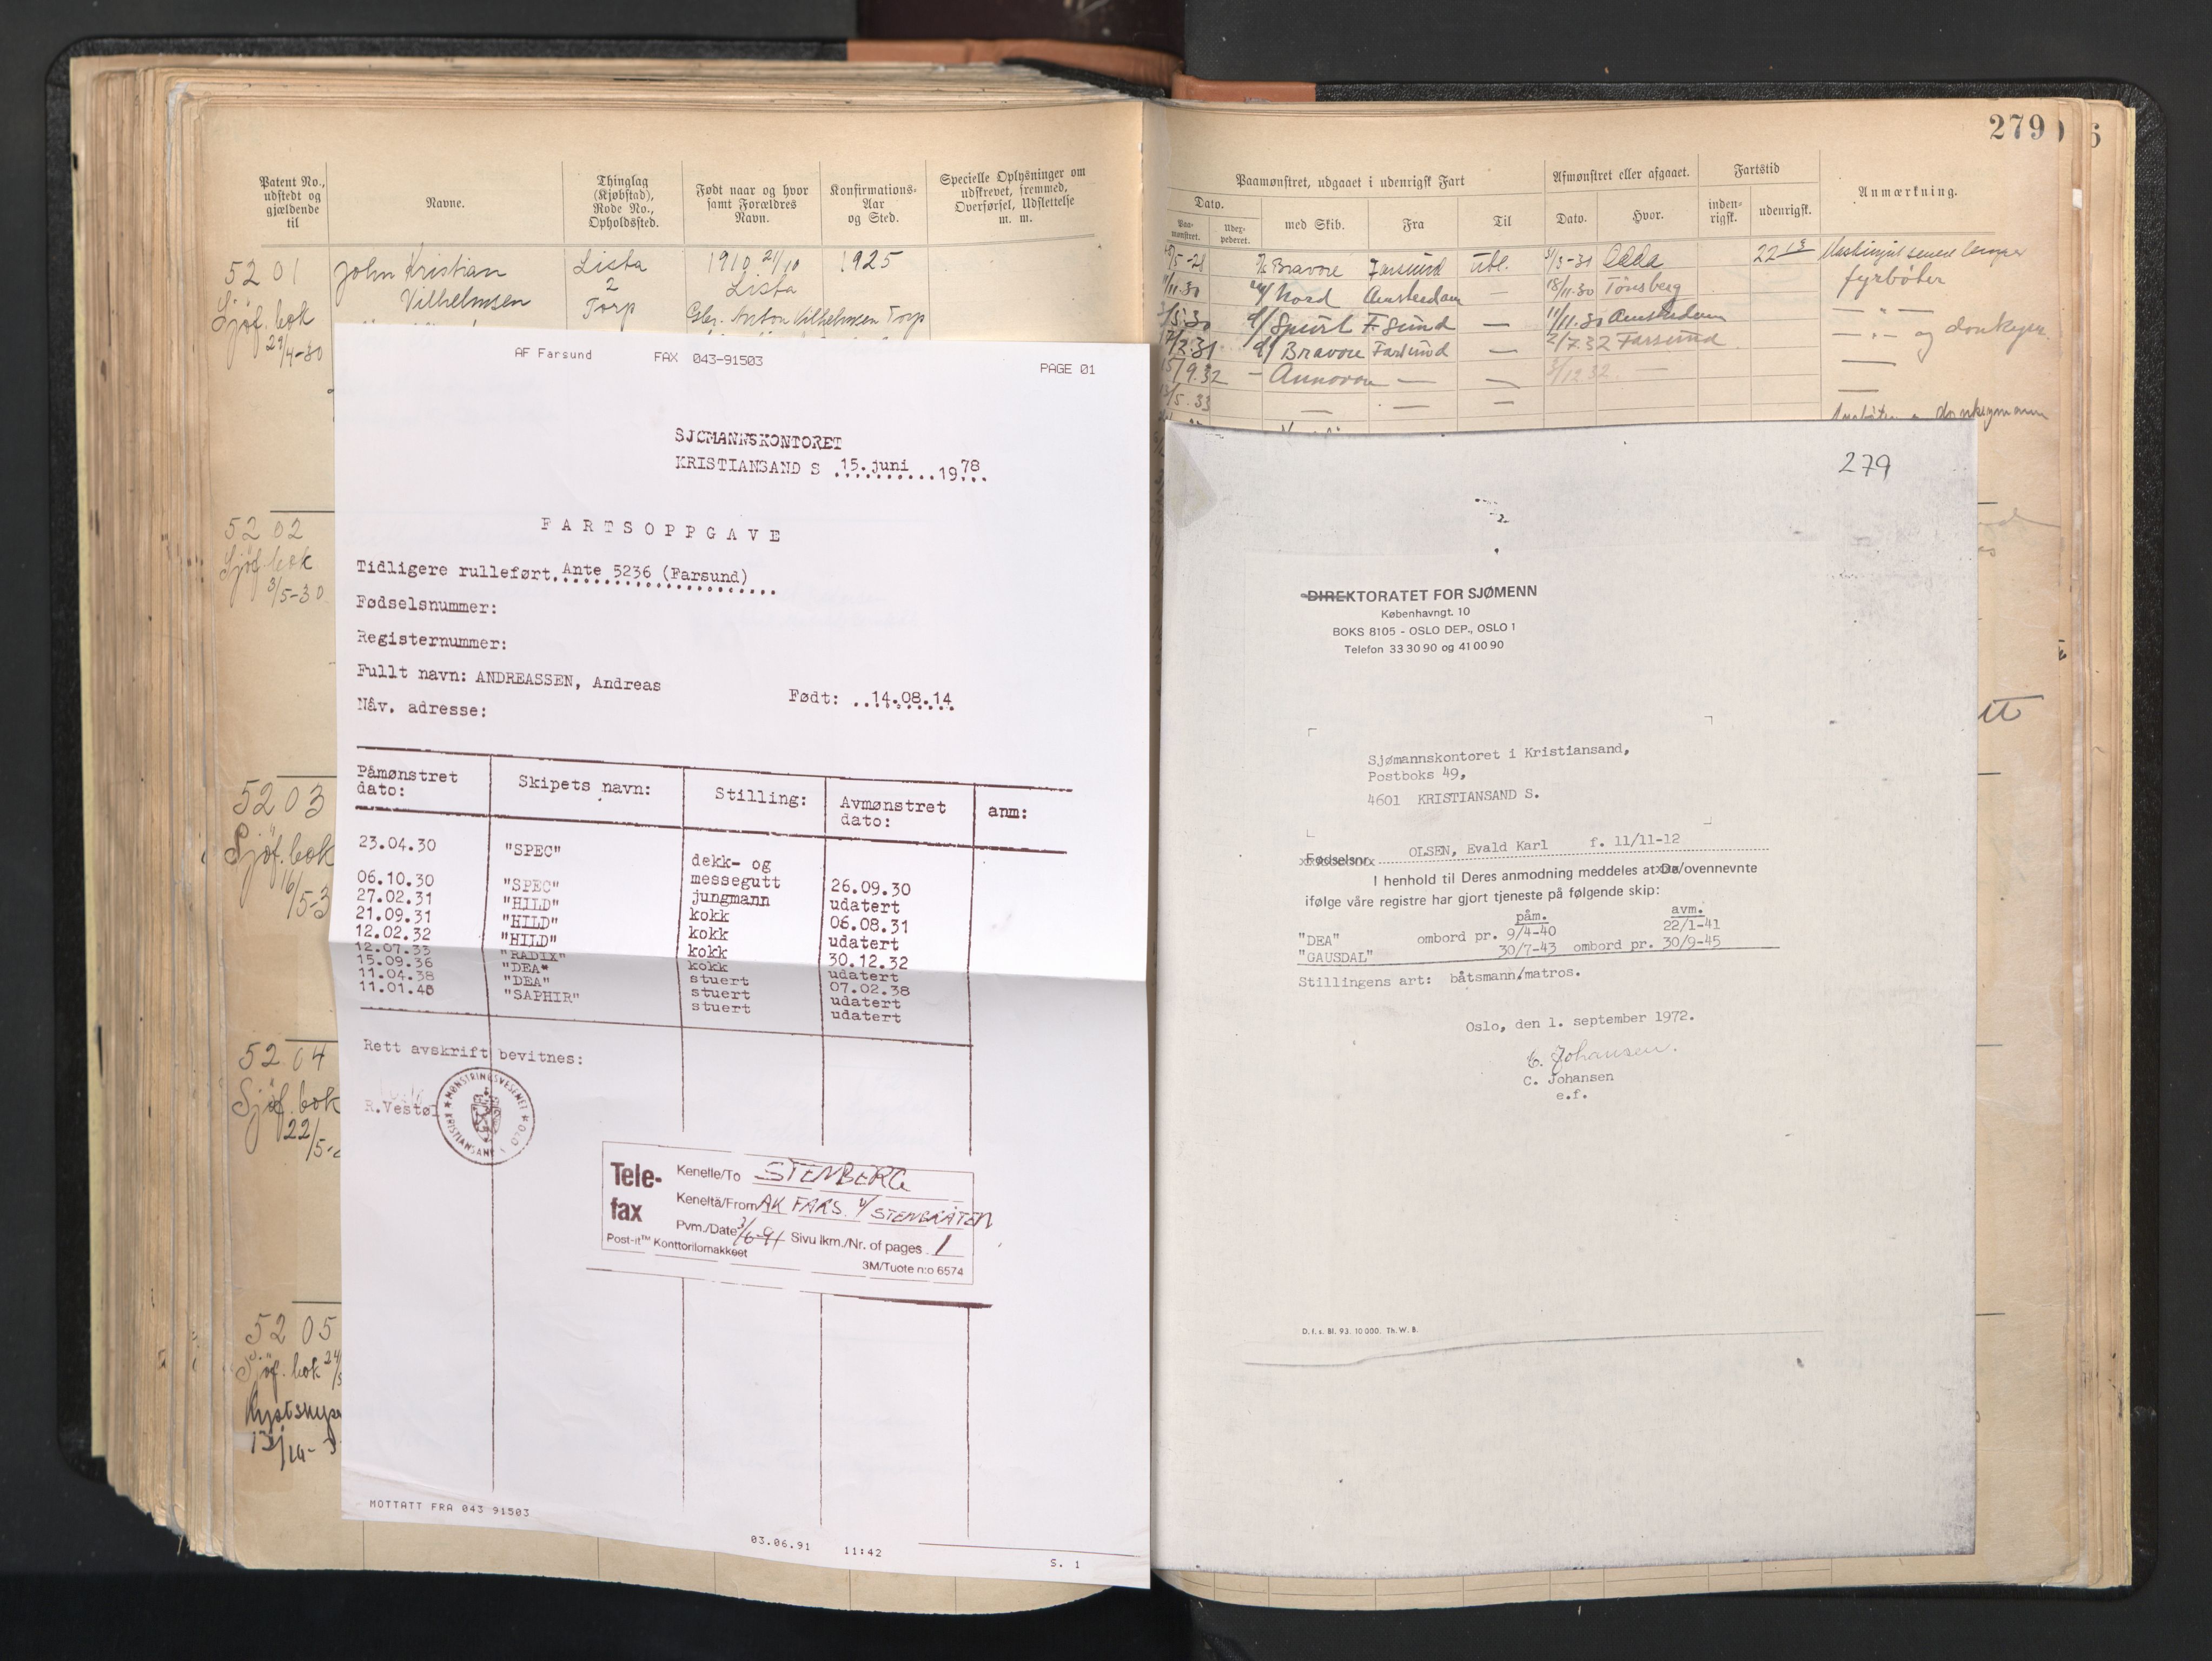 279
Patent No., udstedt og gjældende til
Navne.
Thinglag (Kjøbstad), Rode No., Opholdssted.
Født naar og hvor samt Forældres Navn.
Konfirmations-Aar og Sted.
Specielle Oplysninger om udskrevet, fremmed, Overførsel, Udslettelse m. m.
5201
Sjöf. bok
29/4-30
John Kristian
Vilhelmsen
Lista
2
Torp
1910 21/10
Lista
Gbr. Anton Vilhelmsen Torp
1925
5202
Sjöf. bok
3/5-30
5203
Sjöf. bok
16/5-3
5204
Sjöf. bok
22/5-
5205
Sjöf. bok 24/
AF Farsund FAX 043-91503 PAGE 01
SJØMANNSKONTORET
KRISTIANSAND S 15. juni 1978
FARTSOPPGAVE
Tidligere rulleført. Ante 5236 (Farsund)
Fødselsnummer:
Registernummer:
Fullt navn: ANDREASSEN, Andreas
Født: ..14.08.14
Nåv. adresse:
Påmønstret dato: Skipets navn: Stilling: Avmønstret dato: anm:
23.04.30 "SPEC" dekk- og messegutt 26.09.30
06.10.30 "SPEC" jungmann udatert
27.02.31 "HILD" kokk 06.08.31
21.09.31 "HILD" kokk udatert
12.02.32 "HILD" kokk 30.12.32
12.07.33 "RADIX" kokk udatert
15.09.36 "DEA" stuert 07.02.38
11.04.38 "DEA" stuert udatert
11.01.40 "SAPHIR" stuert udatert
Rett avskrift bevitnes:
R.Vestøl
MØNSTRINGSVESENET
KRISTIANSAND
Tele-fax
Kenelle/To STENBERG
Keneltä/From AK FARS. v/ STENBRÅTEN
Pvm./Date 3/6-91 Sivu lkm./Nr. of pages 1
Post-it™ Konttorilomakkeet
3M/Tuote n:o 6574
MOTTATT FRA 043 91503
03.06.91 11:42
S. 1
Paamønstret, udgaaet i udenrigsk Fart
Afmønstret eller afgaaet.
Fartstid
Anmærkning.
Dato.
Paa-mønstret.
Udex-pederet.
med Skib.
Fra
Til
Dato.
Hvor.
inden-rigsk.
udenrigsk.
Bravore Farsund Utl. Odda
11.30 Nord Amsterdam — 18/11.30 Tönsberg fyrböter
Sport F.sund — 11/11.30 Amsterdam — " — og donkeym.
Bravore Farsund — 2/7.32 Farsund
15/9.32 — Annovore — — /12 32 —
/5.33 — — —
donkeymann
279
DIREKTORATET FOR SJØMENN
Københavngt. 10
BOKS 8105 - OSLO DEP., OSLO 1
Telefon 33 30 90 og 41 00 90
Sjømannskontoret i Kristiansand,
Postboks 49,
4601 KRISTIANSAND S.
Fødselsnr. OLSEN, Evald Karl f. 11/11-12
I henhold til Deres anmodning meddeles at De/ovennevnte
ifølge våre registre har gjort tjeneste på følgende skip:
påm. avm.
"DEA" ombord pr. 9/4-40 22/1-41
"GAUSDAL" 30/7-43 ombord pr. 30/9-45
Stillingens art: båtsmann/matros.
Oslo, den 1. september 1972.
C. Johansen.
C. Johansen
e.f.
D. f. s. Bl. 93. 10 000. Th. W. B.